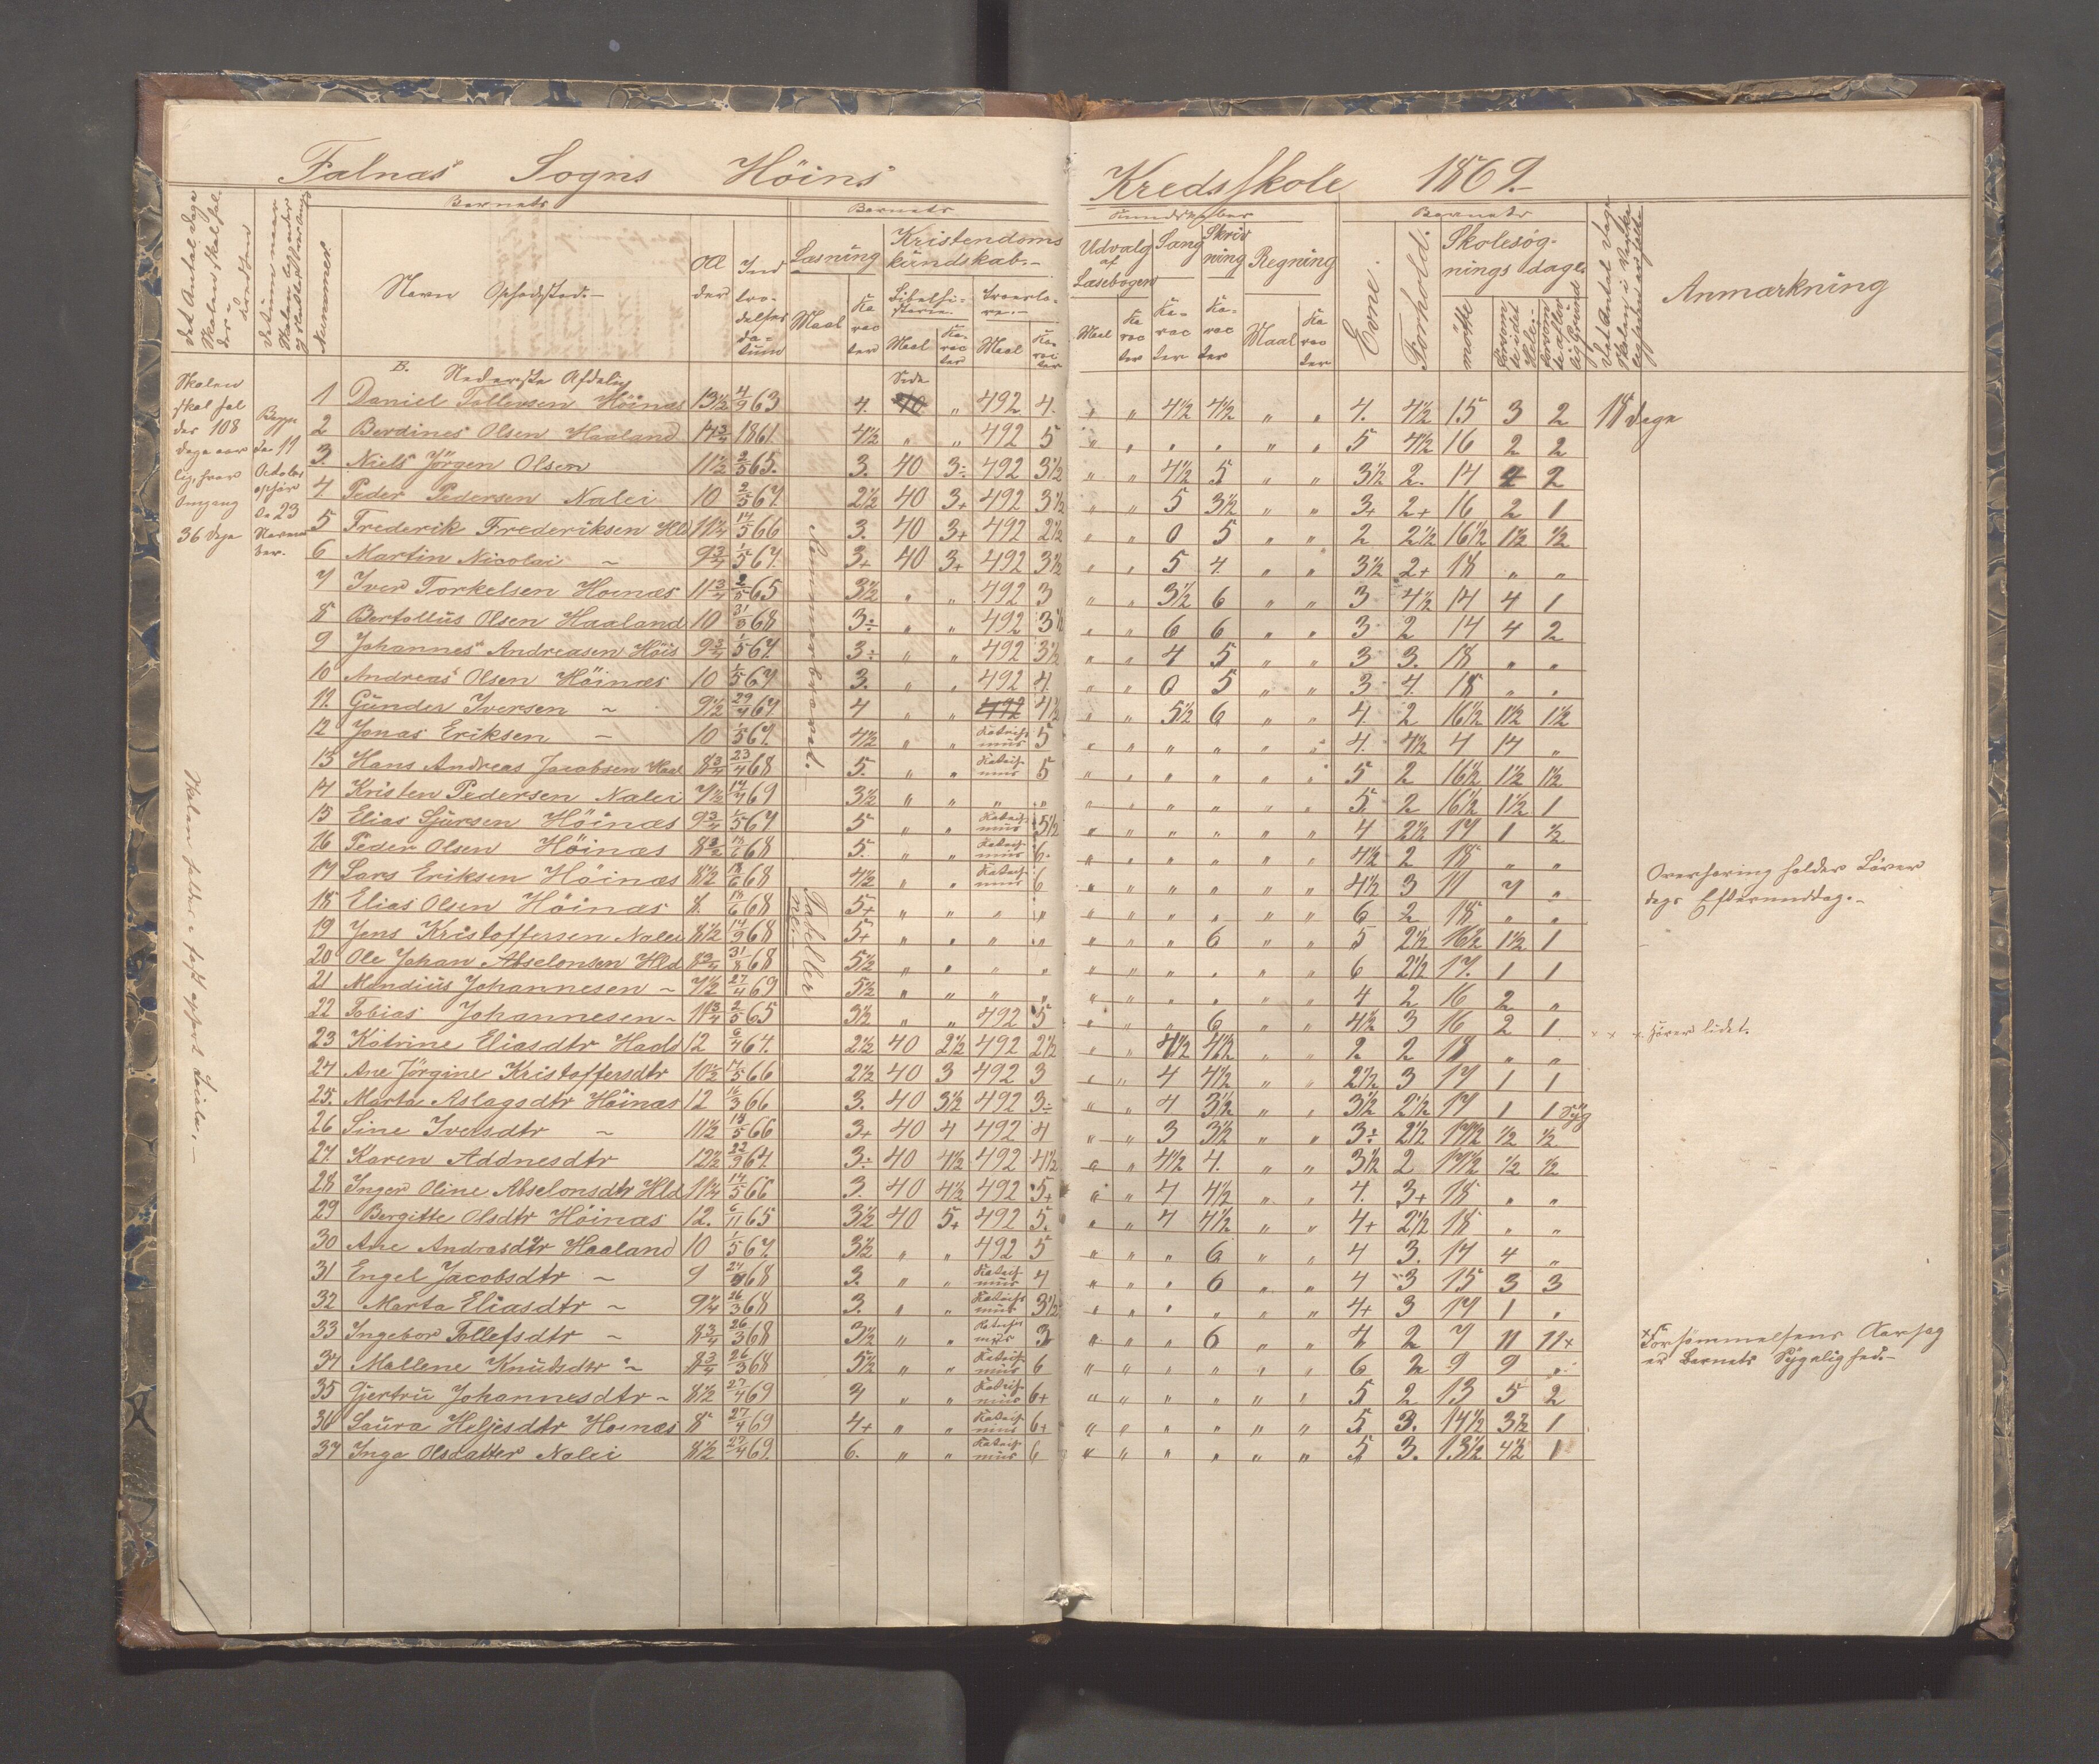 Falnæs Sogns Höines Kredsskole 1869.
Barnets
Barnets
Kundskaber
Barnets
Nummer
Navn Opholdssted.
Al der
Ind træ- delses da- tum
Læsning
Maal
Ka rac ter
Kristendoms kundskab.
Bibelhi- storie.
Maal
Ka- rac ter
Troeslæ- re.
Maal
Ka- rac ter
Udvalg af Læsebogen
Maal
Ka rac ter
Sang
Ka- rac ter
Skriv ning
Ka- rac ter
Regning
Maal
Ka rac ter
Evne.
Forhold.
Skolesøg- nings dage
mötte
Anmærkning
B. Nederste Afdeling
Side
Skolen skal hol des 108 Dage aar lig, hver Omgang 36 Dage
Begyn da 11 October ophör da 23 Novem ber.
1 Daniel Tollevsen Höinæs 13½ 4/9 63 4. 40 „ 492 4. „ „ 4½ 4½ „ „ 4. 4½ 15 3 2 18 Dage
2 Berdines Olsen Haaland 14¾ 1861. 4½ „ „ 492 5 „ „ „ „ „ „ 5 4½ 16 2 2
3. Niels Jörgen Olsen 11½ 2/5 65. 3. 40 3÷ 492 3½ „ „ 4½ 5 „ „ 3½ 2. 14 4 2
4 Peder Pedersen Nalei 10 2/5 67. 2½ 40 3+ 492 3½ „ „ 5 3½ „ „ 3+ 2+ 16 2 1
5 Frederik Frederiksen Hld 11½ 14/5 66 3. 40 3+ 492 2½ „ „ 0 5 „ „ 2 2½ 16½ 1½ ½
6 Martin Nicolai ~ 9¾ 1/5 67. 3+ 40 3+ 492 3½ „ „ 5 4 „ „ 3½ 2+ 18 „ „
7 Iver Torkelsen Hoinæs 11¾ 2/5 65 3½ „ „ 492 3 „ „ 3½ 6 „ „ 3 4½ 14 4 1
8 Bertollus Olsen Haaland 10 31/8 68 3÷ „ „ 492 3½ „ „ 6 6 „ „ 3 2 14 4 2
9 Johannes Andreasen Höis 9¾ 1/5 67. 3÷ „ „ 492 3½ „ „ 4 5 „ „ 3 3. 18 „ „
10 Andreas Olsen Höinæs 10 1/5 67 3. „ „ 492 4. „ „ 0 5 „ „ 3 4. 18 „ „
11. Gunder Iversen ~ 9½ 29/4 67 4 „ „ 492 4½ „ „ 5½ 6 „ „ 4. 2 16½ 1½ 1½
12 Jonas Eriksen ~ 10 1/5 67. 4½ „ „ Katechis mus 5 „ „ „ „ „ „ 4. 4½ 4 14 „
13 Hans Andreas Jacobsen Haal 8¾ 23/4 68 5. „ „ Katechis mus 5 „ „ „ „ „ „ 5 2 16½ 1½ 1½
14 Kristen Pedersen Nalei 7½ 14/4 69 3½ „ „ „ „ „ „ „ „ „ „ 5. 2 16½ 1½ 1
15 Elias Sjursen Höinæs 9¾ 1/5 67 5 „ „ Katechis mus 5½ „ „ „ „ „ „ 4 2½ 17 1 ½
16 Peder Olsen Höinæs 68 5. „ „ Katechis mus 6. „ „ „ „ „ „ 4½ 2 18 „ „
17 Lars Eriksen Höinæs 8½ 18/6 68 4½ „ „ Katechis mus 6 „ „ „ „ „ „ 4½ 3 11 7 „
18 Elias Olsen Höinæs 8. 18/6 68 5+ „ „ „ „ „ „ „ „ „ „ 6 2 18 „ „
19 Jens Kristoffersen Nalei 8½ 14/9 68 5+ „ „ „ „ „ „ „ 6 „ „ 5 2½ 16½ 1½ 1
20 Ole Johan Abselonsen Hld 8¾ 31/8 68 5½ „ „ „ „ „ „ „ „ „ „ 6 2½ 17. 1 1
21 Mondius Johannesen ~ 7½ 27/4 69 5½ „ „ „ „ „ „ „ „ „ „ 4 2 16 2 „
22 Tobias Johannesen ~ 11¾ 2/5 65 3½ „ „ 492 5 „ „ „ 6 „ „ 4½ 3 16 2 1 × × × hörer lidet.
23 Katrine Eliasdtr Haald 12 6/4 64. 2½ 40 2½ 492 2½ „ „ 4½ 4½ „ „ 2 2 18 „ „
24 Ane Jörgine Kristoffersdtr 10½ 66 2½ 40 3 492 3 „ „ 4 4½ „ „ 2½ 3 17 1 1
25. Marta Aslagsdtr Höinæs 12 16/3 66 3. 40 3½ 492 3÷ „ „ 4 3½ „ „ 3½ 2½ 17 1 1 Syg
26 Sine Iversdtr ~ 11½ 18/5 66 3+ 40 4 492 4 „ „ 3 3½ „ „ 3÷ 2½ 17½ ½ ½
27. Karen Addnesdtr 12½ 22/9 67. 3÷ 40 4½ 492 4½ „ „ 4½ 4. „ „ 3½ 2 17½ ½ ½
28 Inger Oline Abselonsdtr Hld 11½ 14/5 66 3. 40 4½ 492 5+ „ „ 4 4½ „ „ 4. 3+ 18 „ „
29 Bergitte Olsdtr Höinæs 12. 6/11 65 3½ 40 5+ 492 5. „ „ 4 4½ „ „ 4+ 2½ 18 „ „
30 Ane Andrasdtr Haaland 10 1/5 67. 3½ „ „ 492 5 „ „ „ 6 „ „ 4 3. 14 4 „
31 Engel Jacobsdtr ~ 9 68 3. „ „ Katechis mus 4 „ „ „ 6 „ „ 4 3 15 3 3
32 Marta Eliasdtr ~ 9¼ 26/3 68 3. „ „ Katechis mus 3½ „ „ „ „ „ „ 4+ 3 17 1 „
33 Ingebor Tollefsdtr ~ 8¾ 26/3 68 3½ „ „ Katechis mus 3 „ „ „ 6 „ „ 4 2 7 11 11×
34 Mallene Knudsdtr ~ 8¾ 26/3 68 5½ „ „ Katechis mus 6 „ „ „ „ „ „ 6 2 9 9 „
35 Gjertru Johannesdtr ~ 8½ 27/4 69 4 „ „ Katechis mus 6+ „ „ „ „ „ „ 5 2 13 5 2
36 Laura Heljesdtr Hoinæs 8 27/4 69 4+ „ „ Katechis mus 6+ „ „ „ „ „ „ 5 3. 14½ 3½ 1
37 Inga Olsdatter Nalei 8½ 27/4 69. 6. „ „ Katechis mus 6 „ „ „ „ „ „ 5 3. 13½ 4½ 1
Tabeller
Overhøring holdes Löver
dags Eftermiddag.
Forsömmelsens Aarsag
er Barnets Sygelighed.